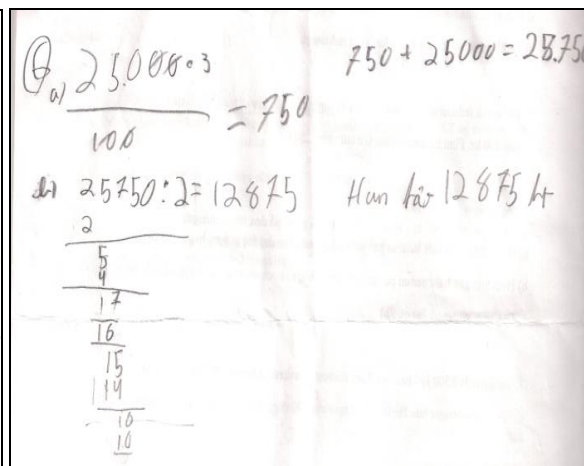 a) 25.000 · 3 / 100 = 750
750 + 25000 = 25.750
b) 25750 : 2 = 12875
Han får 12875 kr
2
5
4
17
16
15
14
10
10